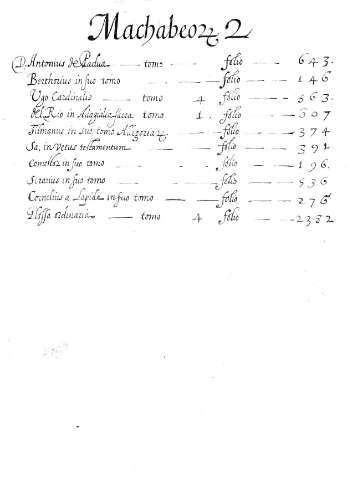 Machabeorū 2
D. Antonius de Padua — tomo — — folio — — 643.
Berthorius in suo tomo — — folio — — 146
Ugo Cardinalis — tomo 4 — folio — — 563.
del Rio in Adagialia sacra tomo 1. — folio — — 607
Tilmanus in suo tomo Allegoriarū — folio — — 374
Sa, in Vetus testamentum — folio — — 391
in suo tomo — folio — — 196.
in suo tomo — folio — — 536
Cornelius a Lapide in suo tomo — folio — — 276
Glossa ordinaria — tomo 4 folio — — 2382